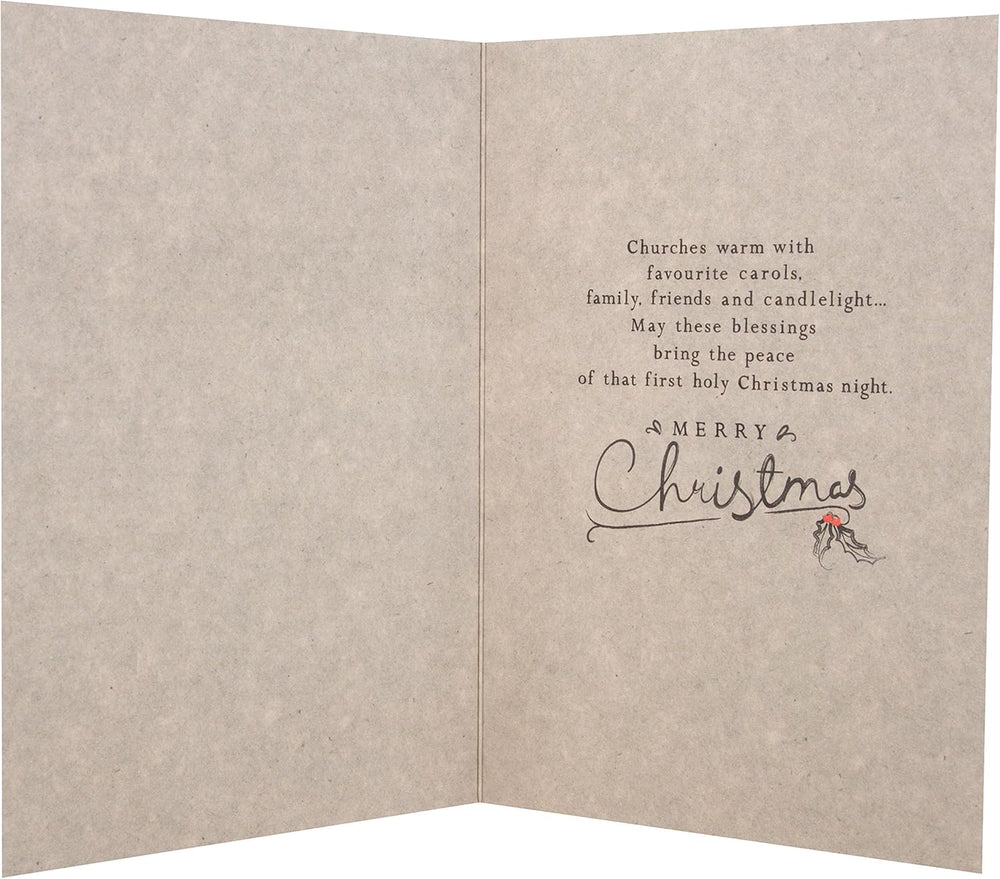 Churches warm with
favourite carols,
family, friends and candlelight...
May these blessings
bring the peace
of that first holy Christmas night.
MERRY
Christmas